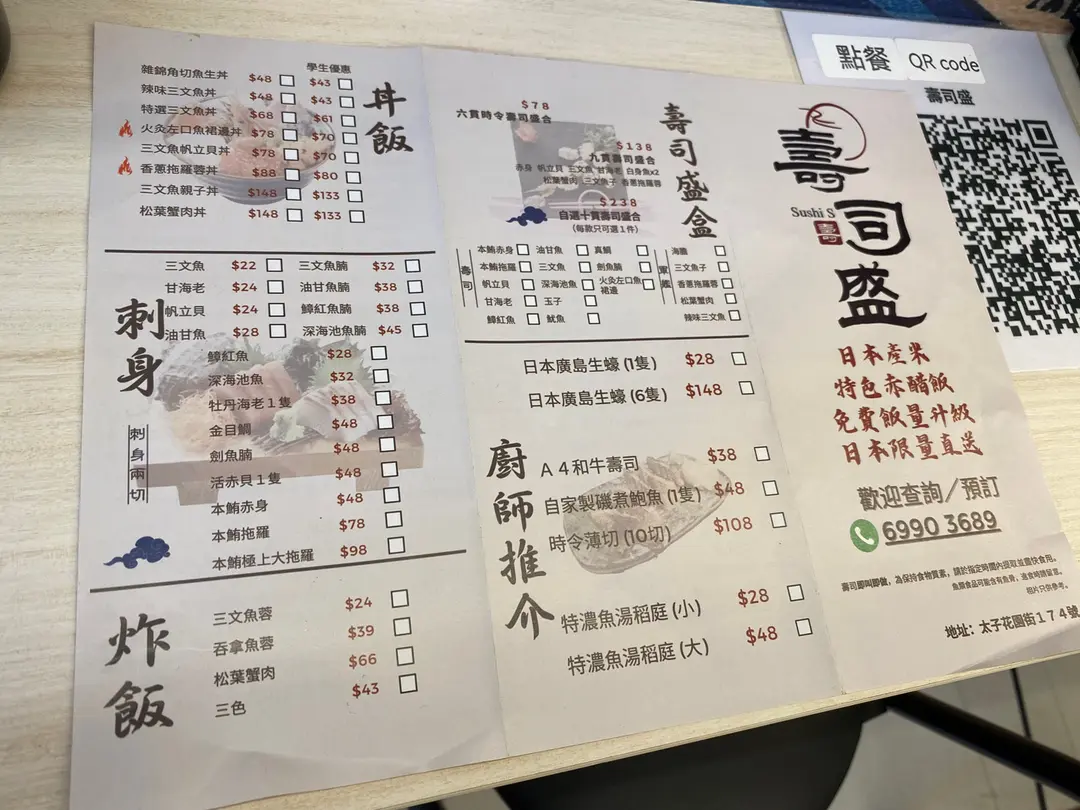 丼飯
學生優惠
雜錦角切魚生丼 $48 $43
辣味三文魚丼 $48 $43
特選三文魚丼 $68 $61
火灸左口魚裙邊丼 $78 $70
三文魚帆立貝丼 $78 $70
香蔥拖羅蓉丼 $88 $80
三文魚親子丼 $148 $133
松葉蟹肉丼 $148 $133
刺身
三文魚 $22 三文魚腩 $32
甘海老 $24 油甘魚腩 $38
帆立貝 $24 鱆紅魚腩 $38
油甘魚 $28 深海池魚腩 $45
刺身兩切
鱆紅魚 $28
深海池魚 $32
牡丹海老1隻 $38
金目鯛 $48
劍魚腩 $48
活赤貝1隻 $48
本鮪赤身 $48
本鮪拖羅 $78
本鮪極上大拖羅 $98
炸飯
三文魚蓉 $24
吞拿魚蓉 $39
松葉蟹肉 $66
三色 $43
壽司盛盒
$78
六貫時令壽司盛合
$138
九貫壽司盛合
赤身 帆立貝 三文魚 甘海老 白身魚x2
松葉蟹肉 三文魚子 香蔥拖羅蓉
$238
自選十貫壽司盛合
(每款只可選1件)
壽司
本鮪赤身 油甘魚 真鯛
本鮪拖羅 三文魚 劍魚腩
帆立貝 深海池魚 火灸左口魚裙邊
甘海老 玉子
鱆紅魚 魷魚
軍艦
海膽
三文魚子
香蔥拖羅蓉
松葉蟹肉
辣味三文魚
日本廣島生蠔 (1隻) $28
日本廣島生蠔 (6隻) $148
廚師推介
A4和牛壽司 $38
自家製磯煮鮑魚 (1隻) $48
時令薄切 (10切) $108
特濃魚湯稻庭 (小) $28
特濃魚湯稻庭 (大) $48
壽司盛
Sushi S
壽司
日本產米
特色赤醋飯
免費飯量升級
日本限量直送
歡迎查詢/預訂
6990 3689
壽司即叫即做,為保持食物質素,請於指定時間內提取並盡快食用。
魚類食品可能含有魚骨,進食時請留意。
相片只供參考。
地址:太子花園街174號
點餐 QR code
壽司盛